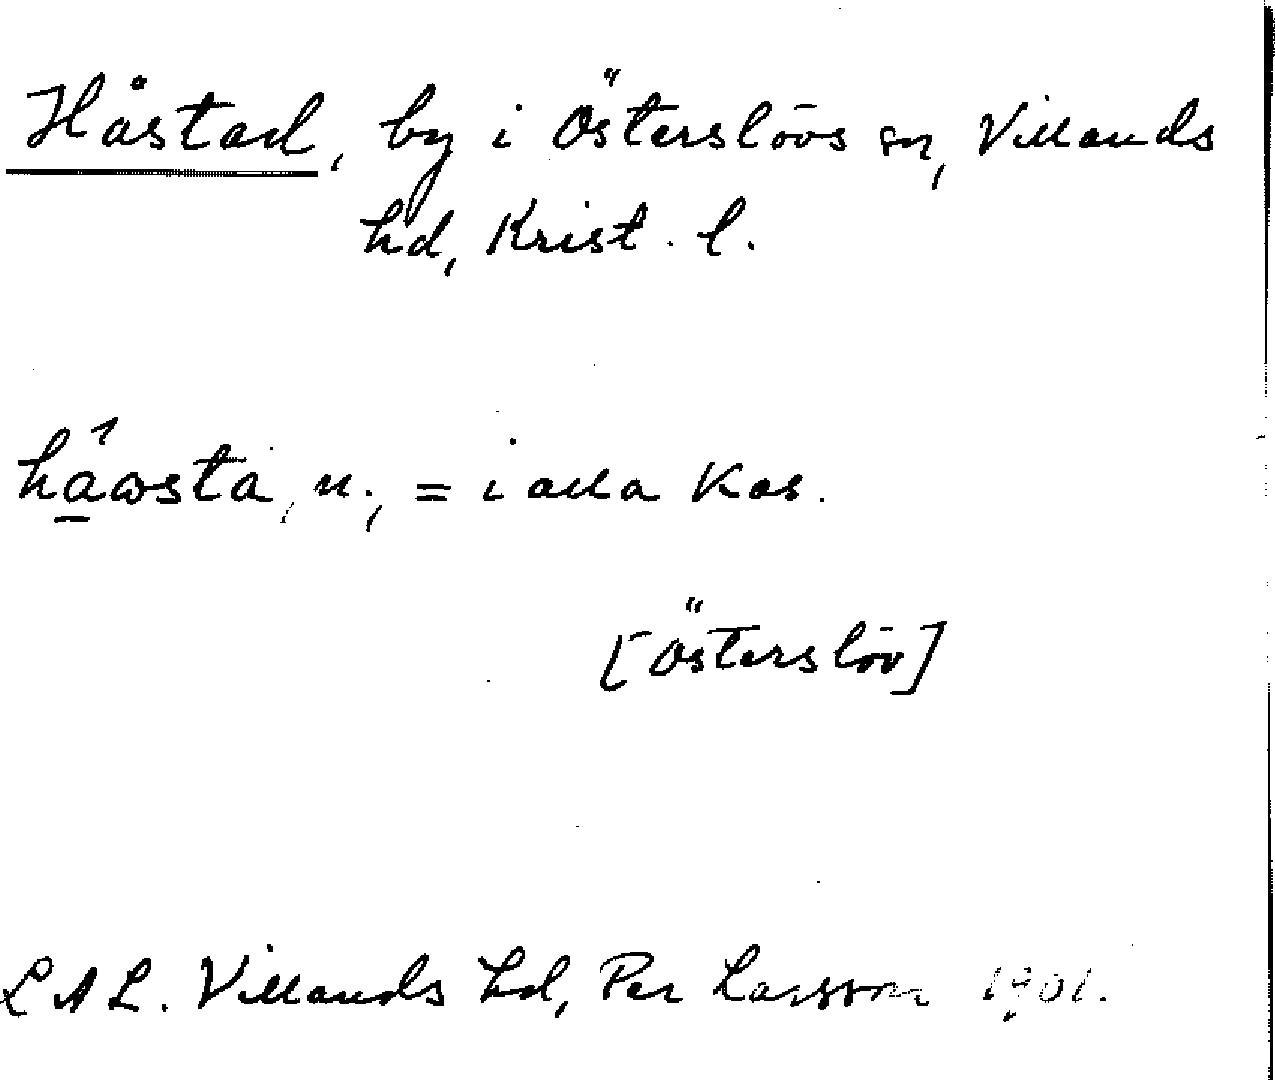 Håstad, by i Österslövs sn, Villands
hd, Krist. l.
håωsta, n., = i alla Kas.
[Österslöv]
LAL. Villands hd, Per Larsson 1901.